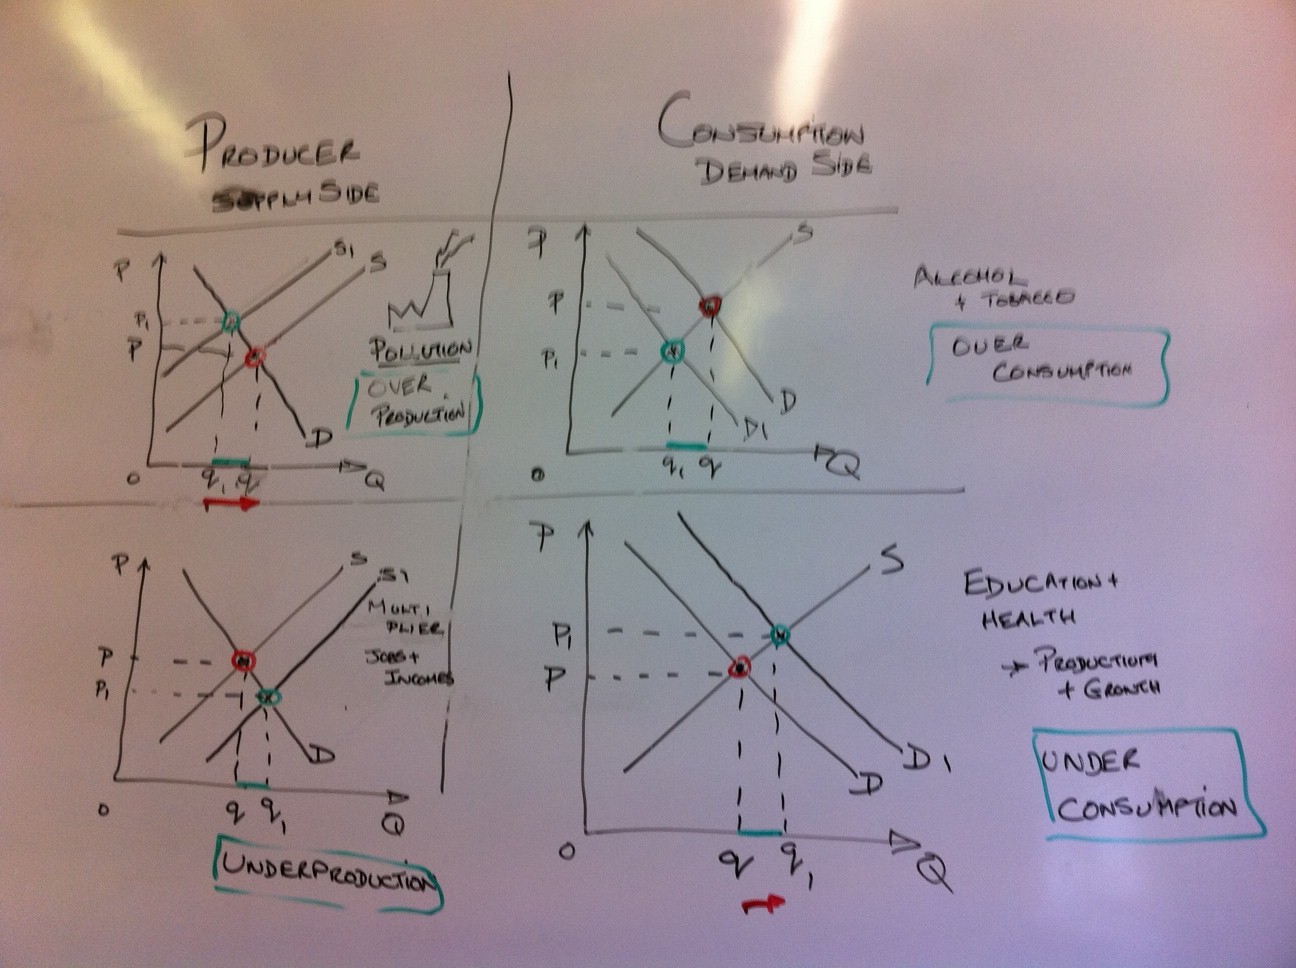 PRODUCER
SUPPLY SIDE
CONSUMPTION
DEMAND SIDE
P
S1
S
P1
P
D
O
q1 q
Q
POLLUTION
OVER
PRODUCTION
P
S
P
P1
D
D1
O
q1 q
Q
ALCOHOL
+ TOBACCO
OVER
CONSUMPTION
P
S
S1
MULTI
PLIER
JOBS +
INCOMES
P
P1
D
O
q q1
Q
UNDERPRODUCTION
P
S
P1
P
D1
D
O
q q1
Q
EDUCATION +
HEALTH
→ PRODUCTIVITY
+ GROWTH
UNDER
CONSUMPTION